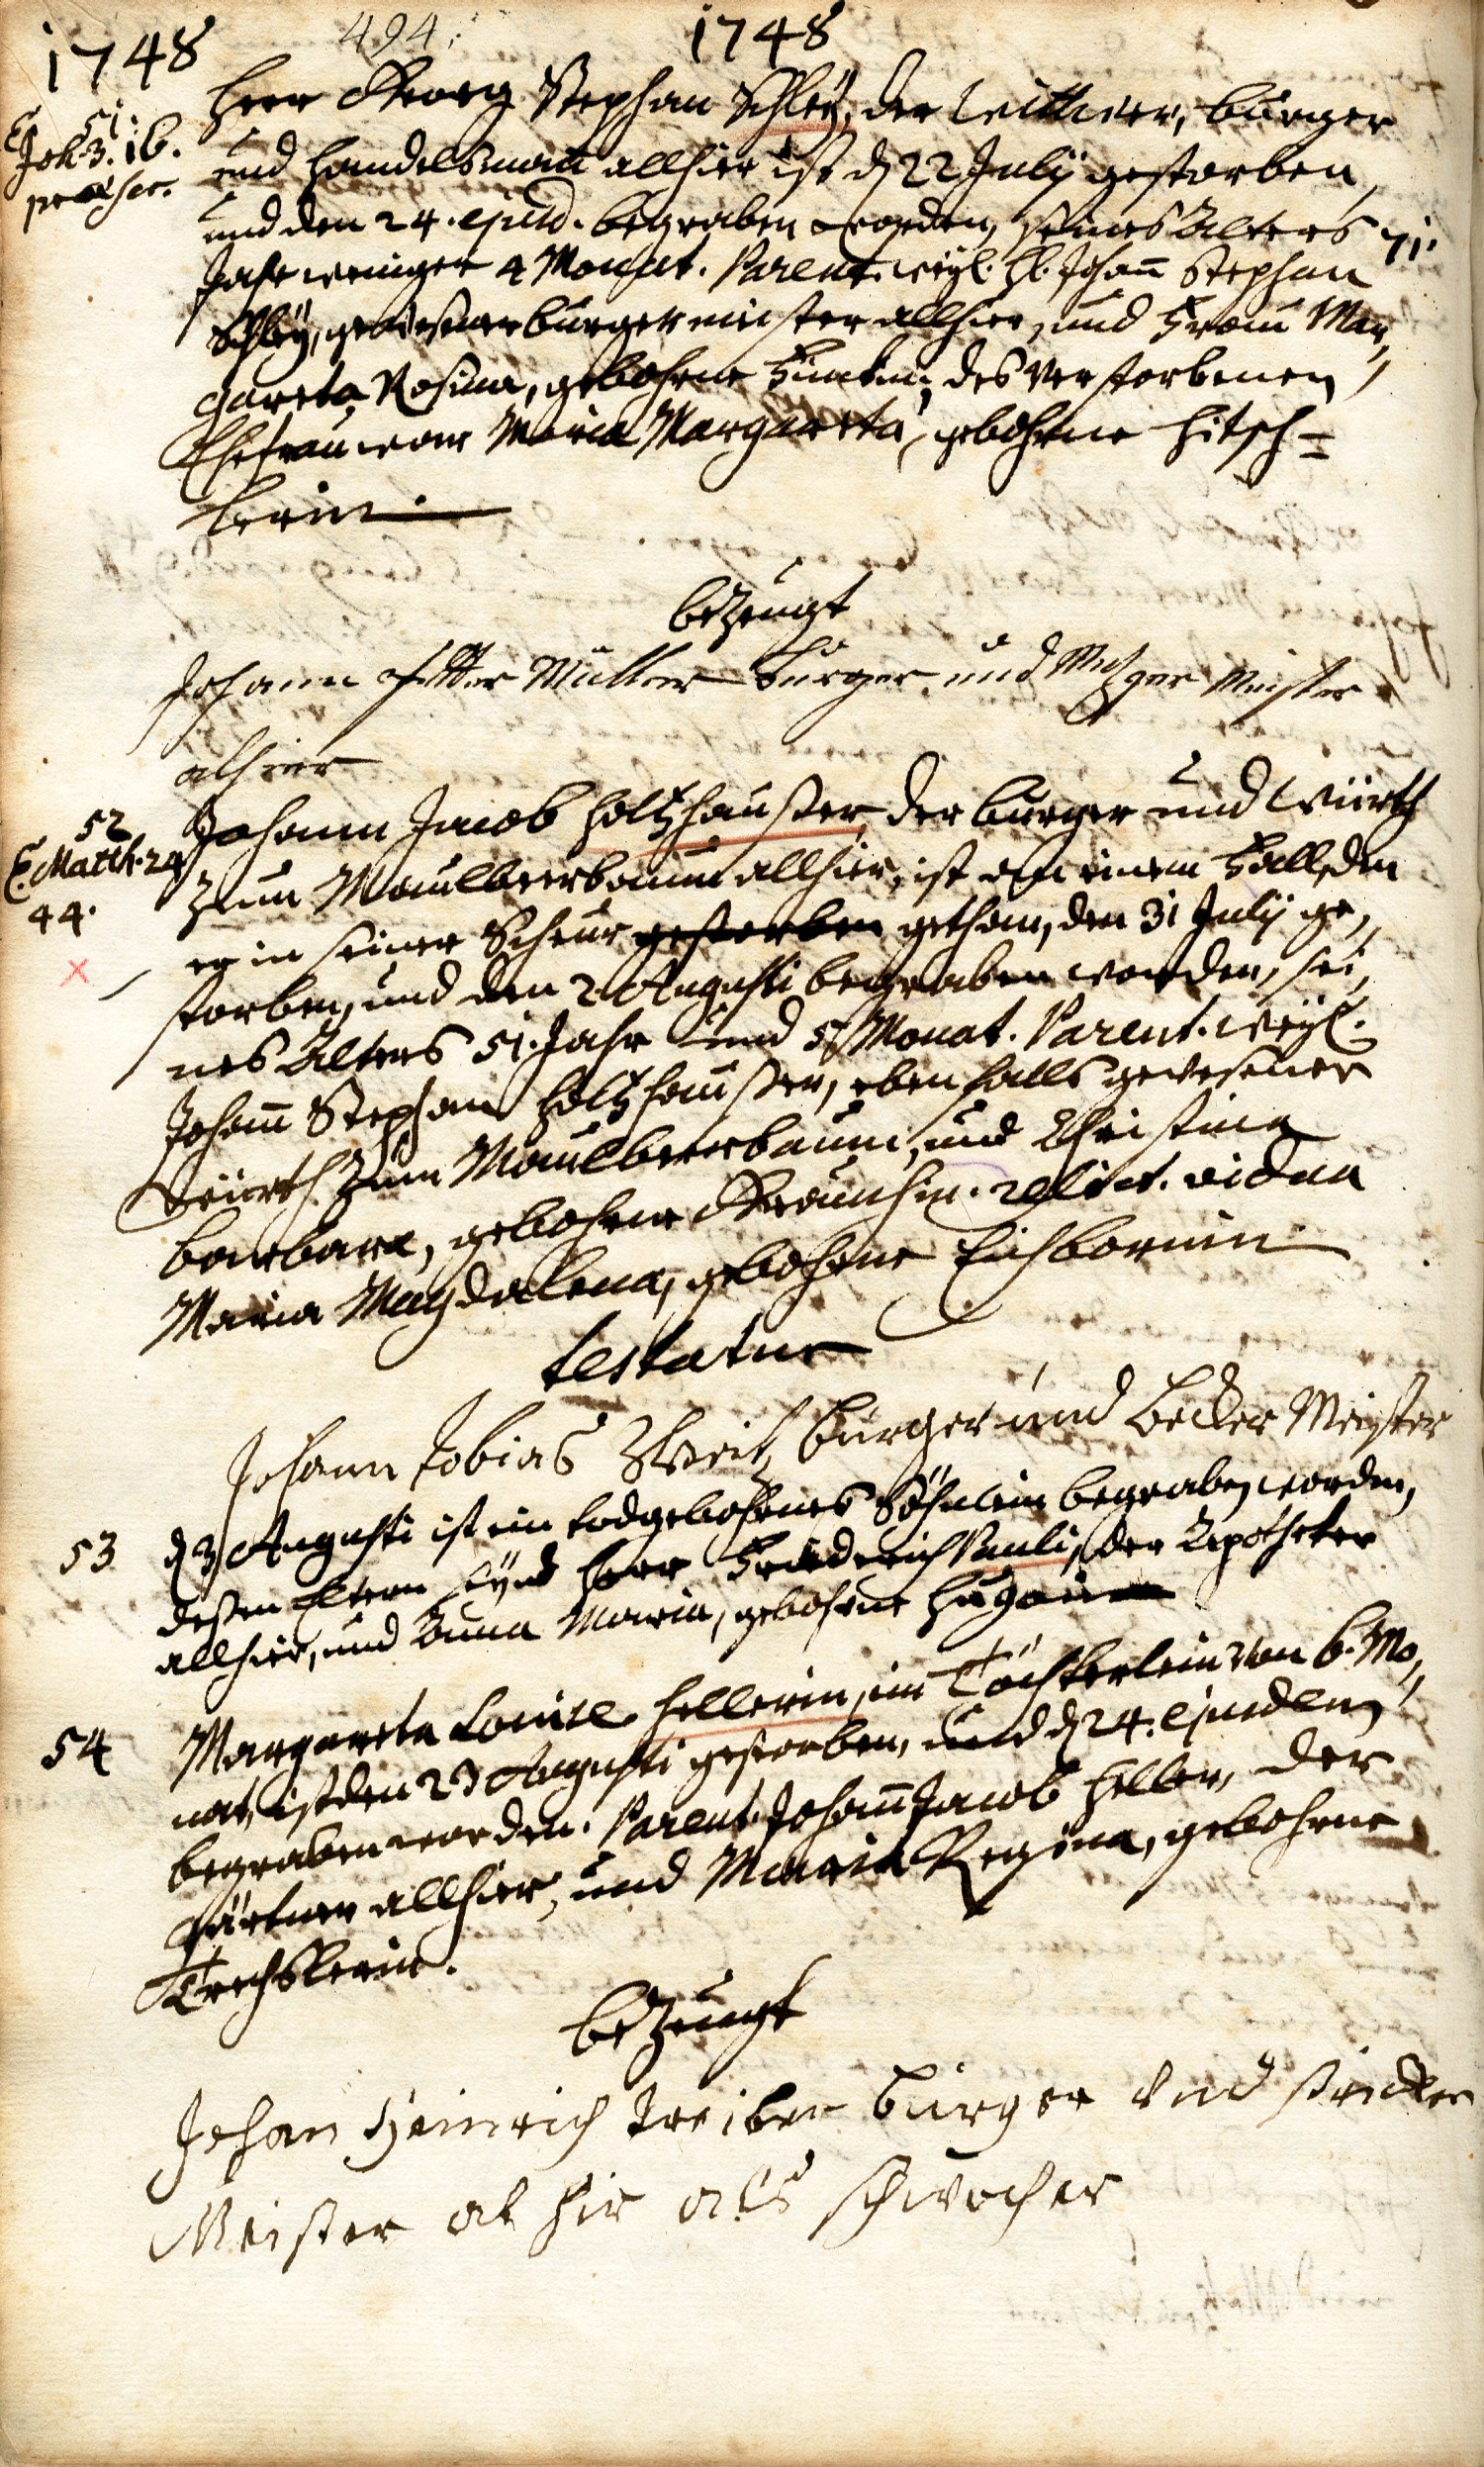 1748 494. 1748
51.
E. Joh. 3. 16.
Herr Georg Stephan Schley, der Mittlere, burger
und handelsmann allhier ist d 22 July gestorben,
und den 24. ejusd. begraben worden, seines Alters 71.
Jahr weniger 4 Monat. Parent. weyl. H. Johann Stephan
Schley, gewesener burgermeister allhier, und Frau Mar,,
gareta Rosina, gebohrne des verstorbenen
Ehefrau war Maria Margareta, gebohrne Hitsch=
lerin.
bezeugt
Johann Petter Müller burger und Metzger Meister
alhier
52
E. Matth. 24
44.
Johann Jacob Holtzhaußer, der burger und Würth
zum Maulbeerbaum allhier, ist an einem Fall, den
er in seiner Scheur gestorben gethan, den 31 July ge,,
storben, und den 2 Augusti begraben worden, sei,,
nes Alters 51. Jahr und 5 Monat. Parent. weyl.
Johann Stephan Holtzhaußer, eben falls gewesener
Würth zum Maulbeerbaum, und Christina
barbara, gebohrne relict. vidua
Maria Magdalena, gebohrne Eichbornin
testatur
Johann Tobias Zweitz burger und Becker Meister
53
d 3 Augusti ist ein todgebohrnes Söhnlein begraben worden,
deßen Eltern seynd Herr Friederich Pauli, der Apotheker
allhier, und Anna Maria, gebohrne Hugoin
54
Margareta Louise Hellerin, ein Töchterlein von 6. Mo,,
nat, ist den 23 Augusti gestorben, und d 24. ejusdem
begraben worden. Parent. Johann Jacob Heller, der
gärtner allhier, und Maria Regina, gebohrne
Trechslerin.
bezeugt
Johan Heinrich Treiber burger und stricker
Meister al hir als schwocher